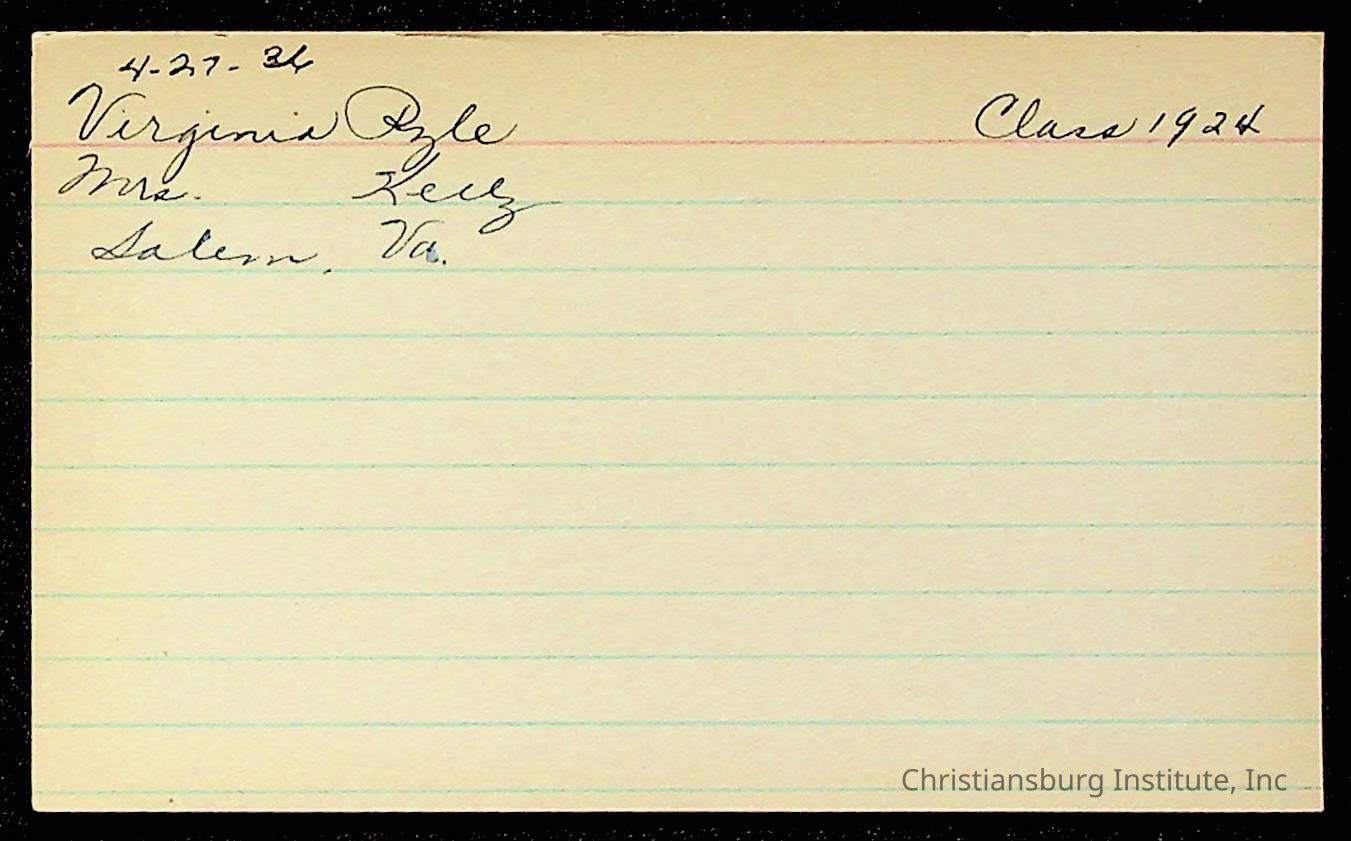 4-27-36
Virginia Pyle Class 1924
Mrs. Kelly
Salem, Va.
Christiansburg Institute, Inc